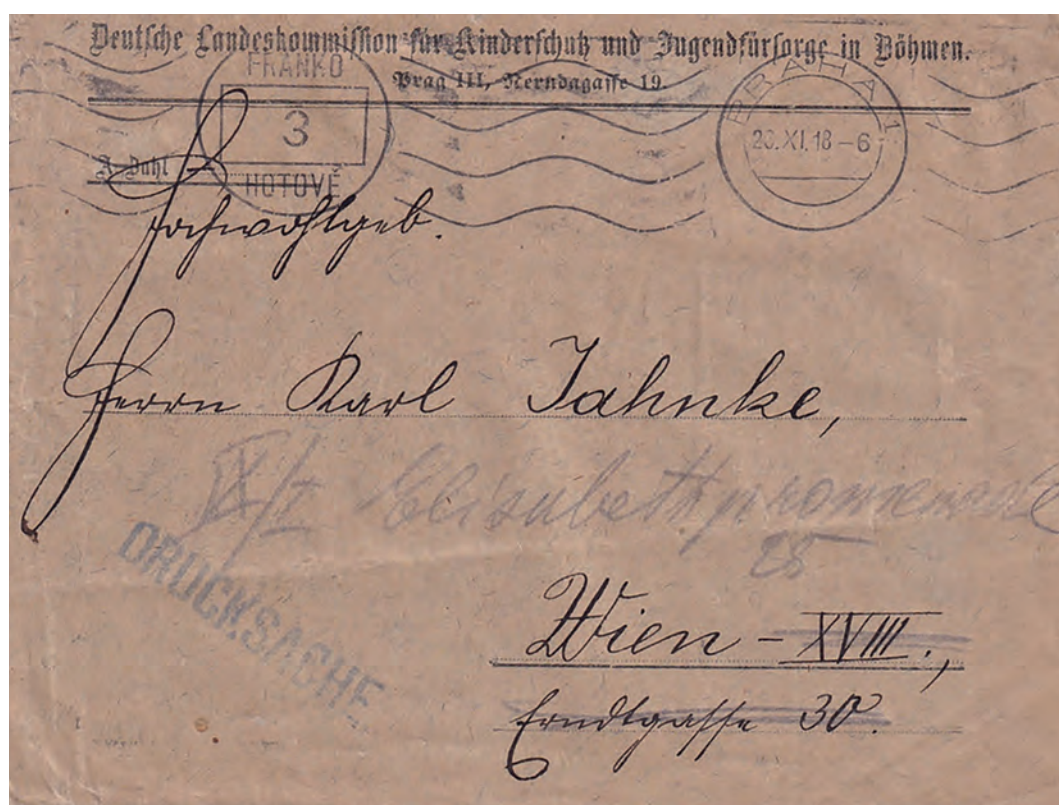 Deutsche Landeskommission für Kinderschutz und Jugendfürsorge in Böhmen.
Prag III, Nerudagasse 19.
FRANKO
3
HOTOVĚ
PRAHA 1
XI.18-6
Hochwohlgeb.
Herrn Karl Jahnke,
IX/I Elisabethpromenade
25
DRUCKSACHE
Wien - XVIII.,
Erndtgasse 30.